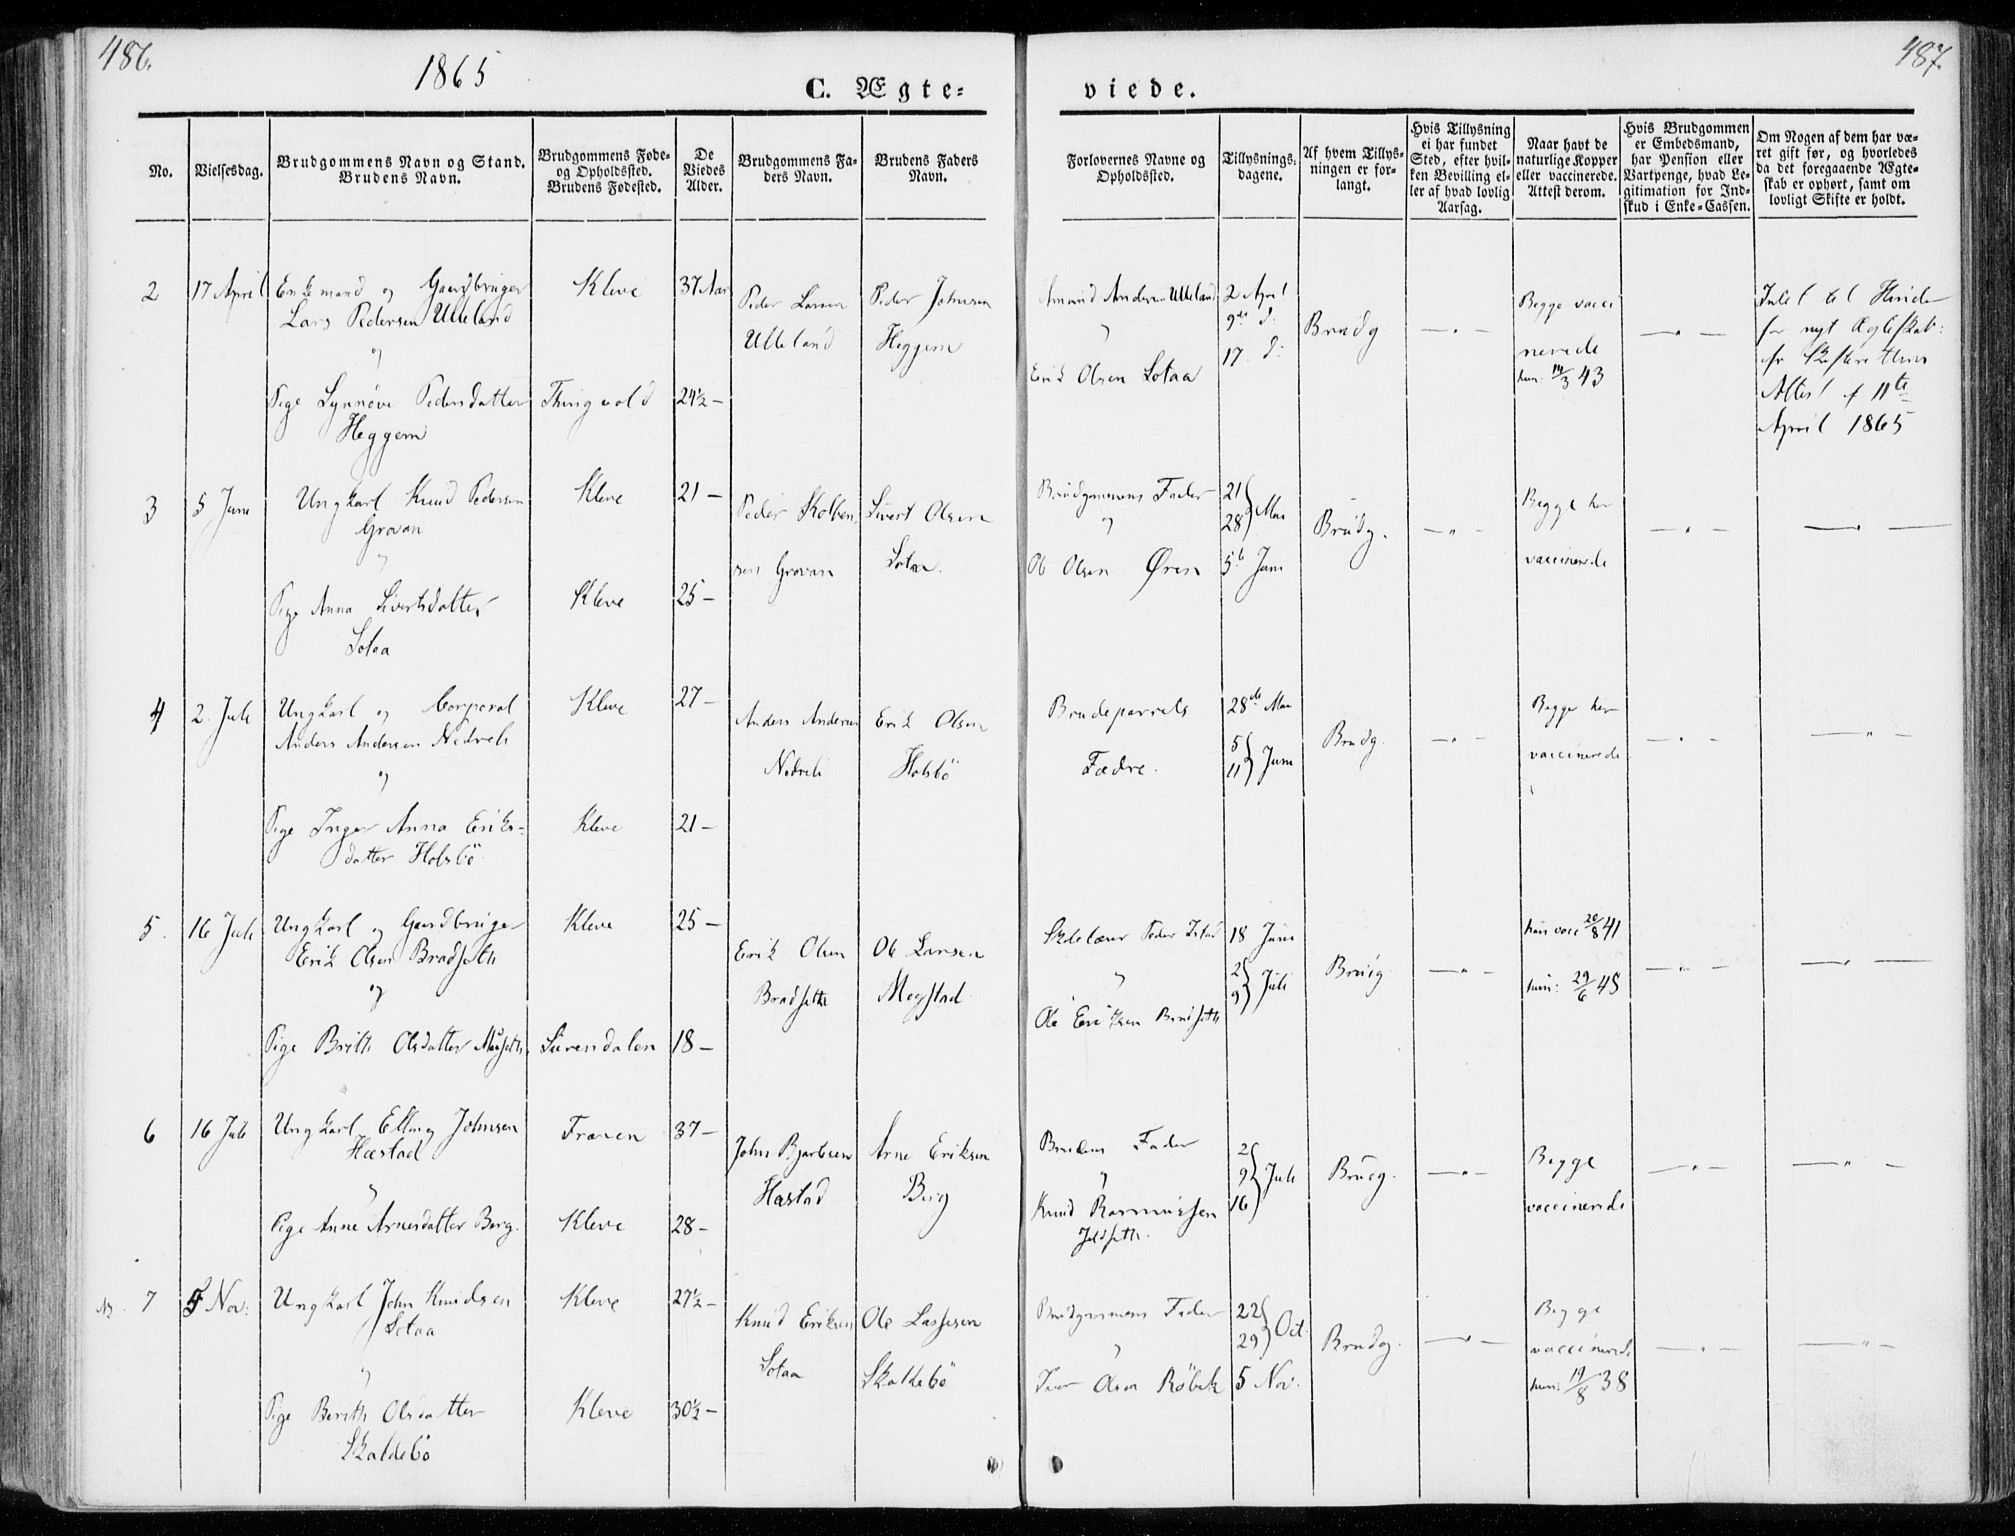 486.
1865
487.
C. Ægte-
viede.
No.
Vielsesdag.
Brudgommens Navn og Stand.
Brudens Navn.
Brudgommens Føde-
og Opholdssted.
Brudens Fødested.
De
Viedes
Alder.
Brudgommens Fa-
ders Navn.
Brudens Faders
Navn.
Forlovernes Navne og
Opholdssted.
Tillysnings-
dagene.
Af hvem Tillys-
ningen er for-
langt.
Hvis Tillysning
ei har fundet
Sted, efter hvil-
ken Bevilling el-
ler af hvad lovlig
Aarsag.
Naar havt de
naturlige Kopper
eller vaccinerede.
Attest derom.
Hvis Brudgommen
er Embedsmand,
har Pension eller
Vartpenge, hvad Le-
gitimation for Ind-
skud i Enke-Cassen.
Om Nogen af dem har væ-
ret gift før, og hvorledes
da det foregaaende Ægte-
skab er ophørt, samt om
lovligt Skifte er holdt.
2
17 April
Enkemand og Gaardbruger
Lars Pedersen Ulleland
og
Pige Synnøve Pedersdatter
Heggem
Kleve
Thingvold
37 Aar
24½ —
Peder Larsen
Ulleland
Peder Johnsen
Heggem
Amund Andersen Ulleland
"
Erik Olsen Sotaa
2 April
9de d:
17. d:
Brudg
— " —
Begge vacci
nerede
hun: 14/3 43
— " —
Intet til Hinder
for nyt Ægteskab
Attest af 11te
April 1865
3
5 Juni
Ungkarl Knud Pedersen
Grovan
"
Pige Anna Sivertsdatter
Sotaa
Kleve
Kleve
21 —
25 —
Peder Kolben
sen Grovan
Sivert Olsen
Sotaa.
Brudgommens Fader
og
Ole Olsen Øren
21
28 } Mai
5te Juni
Brudg.
— " —
Begge her
vaccinerede
— " —
— " —
4
2. Juli
Ungkarl og Corporal
Anders Andersen Nedreli
og
Pige Inger Anna Eriks-
datter Holsbö
Kleve
Kleve
27 —
21 —
Anders Andersen
Nedreli
Erik Olsen
Holsbö
Brudeparrets
Fædre.
28de Mai
5
11 } Juni
Brudg.
— " —
Begge her
vaccinerede
— " —
— " —
5.
16 Juli
Ungkarl og Gaardbruger
Erik Olsen Bradseth
og
Pige Brith Olsdatter
Kleve
Surendalen
25 —
18 —
Erik Olsen
Bradseth
Ole Larsen
Mogstad
Peder Istad
"
Ole Eriksen Bradseth
18 Juni
2
9 } Juli
Brudg.
— " —
han vacc 20/8 41
hun: 29/6 48
— " —
— " —
6
16 Juli
Ungkarl Elling Johnsen
Hæstad
"
Pige Anne Arnesdatter Berg.
Frænen
Kleve
37 —
28 —
John
Hæstad
Arne Eriksen
Berg
Brudens Fader
"
Knud Rasmussen
2
9 } Juli
16
Brudg.
— " —
Begge
vaccinerede
— " —
— " —
7
5 Nov:
Ungkarl John Knudsen
Sotaa
"
Pige Berith Olsdatter
Skaldebö
Kleve
Kleve
27½ —
30½ —
Knud Eriksen
Sotaa
Ole Lassesen
Skaldebö
Brudgommens Fader
"
Iver Olsen Röbek
22
29 } Oct.
5 Nov.
Brudg.
— " —
Begge
vaccinerede
hun: 19/8 38
— " —
— " —